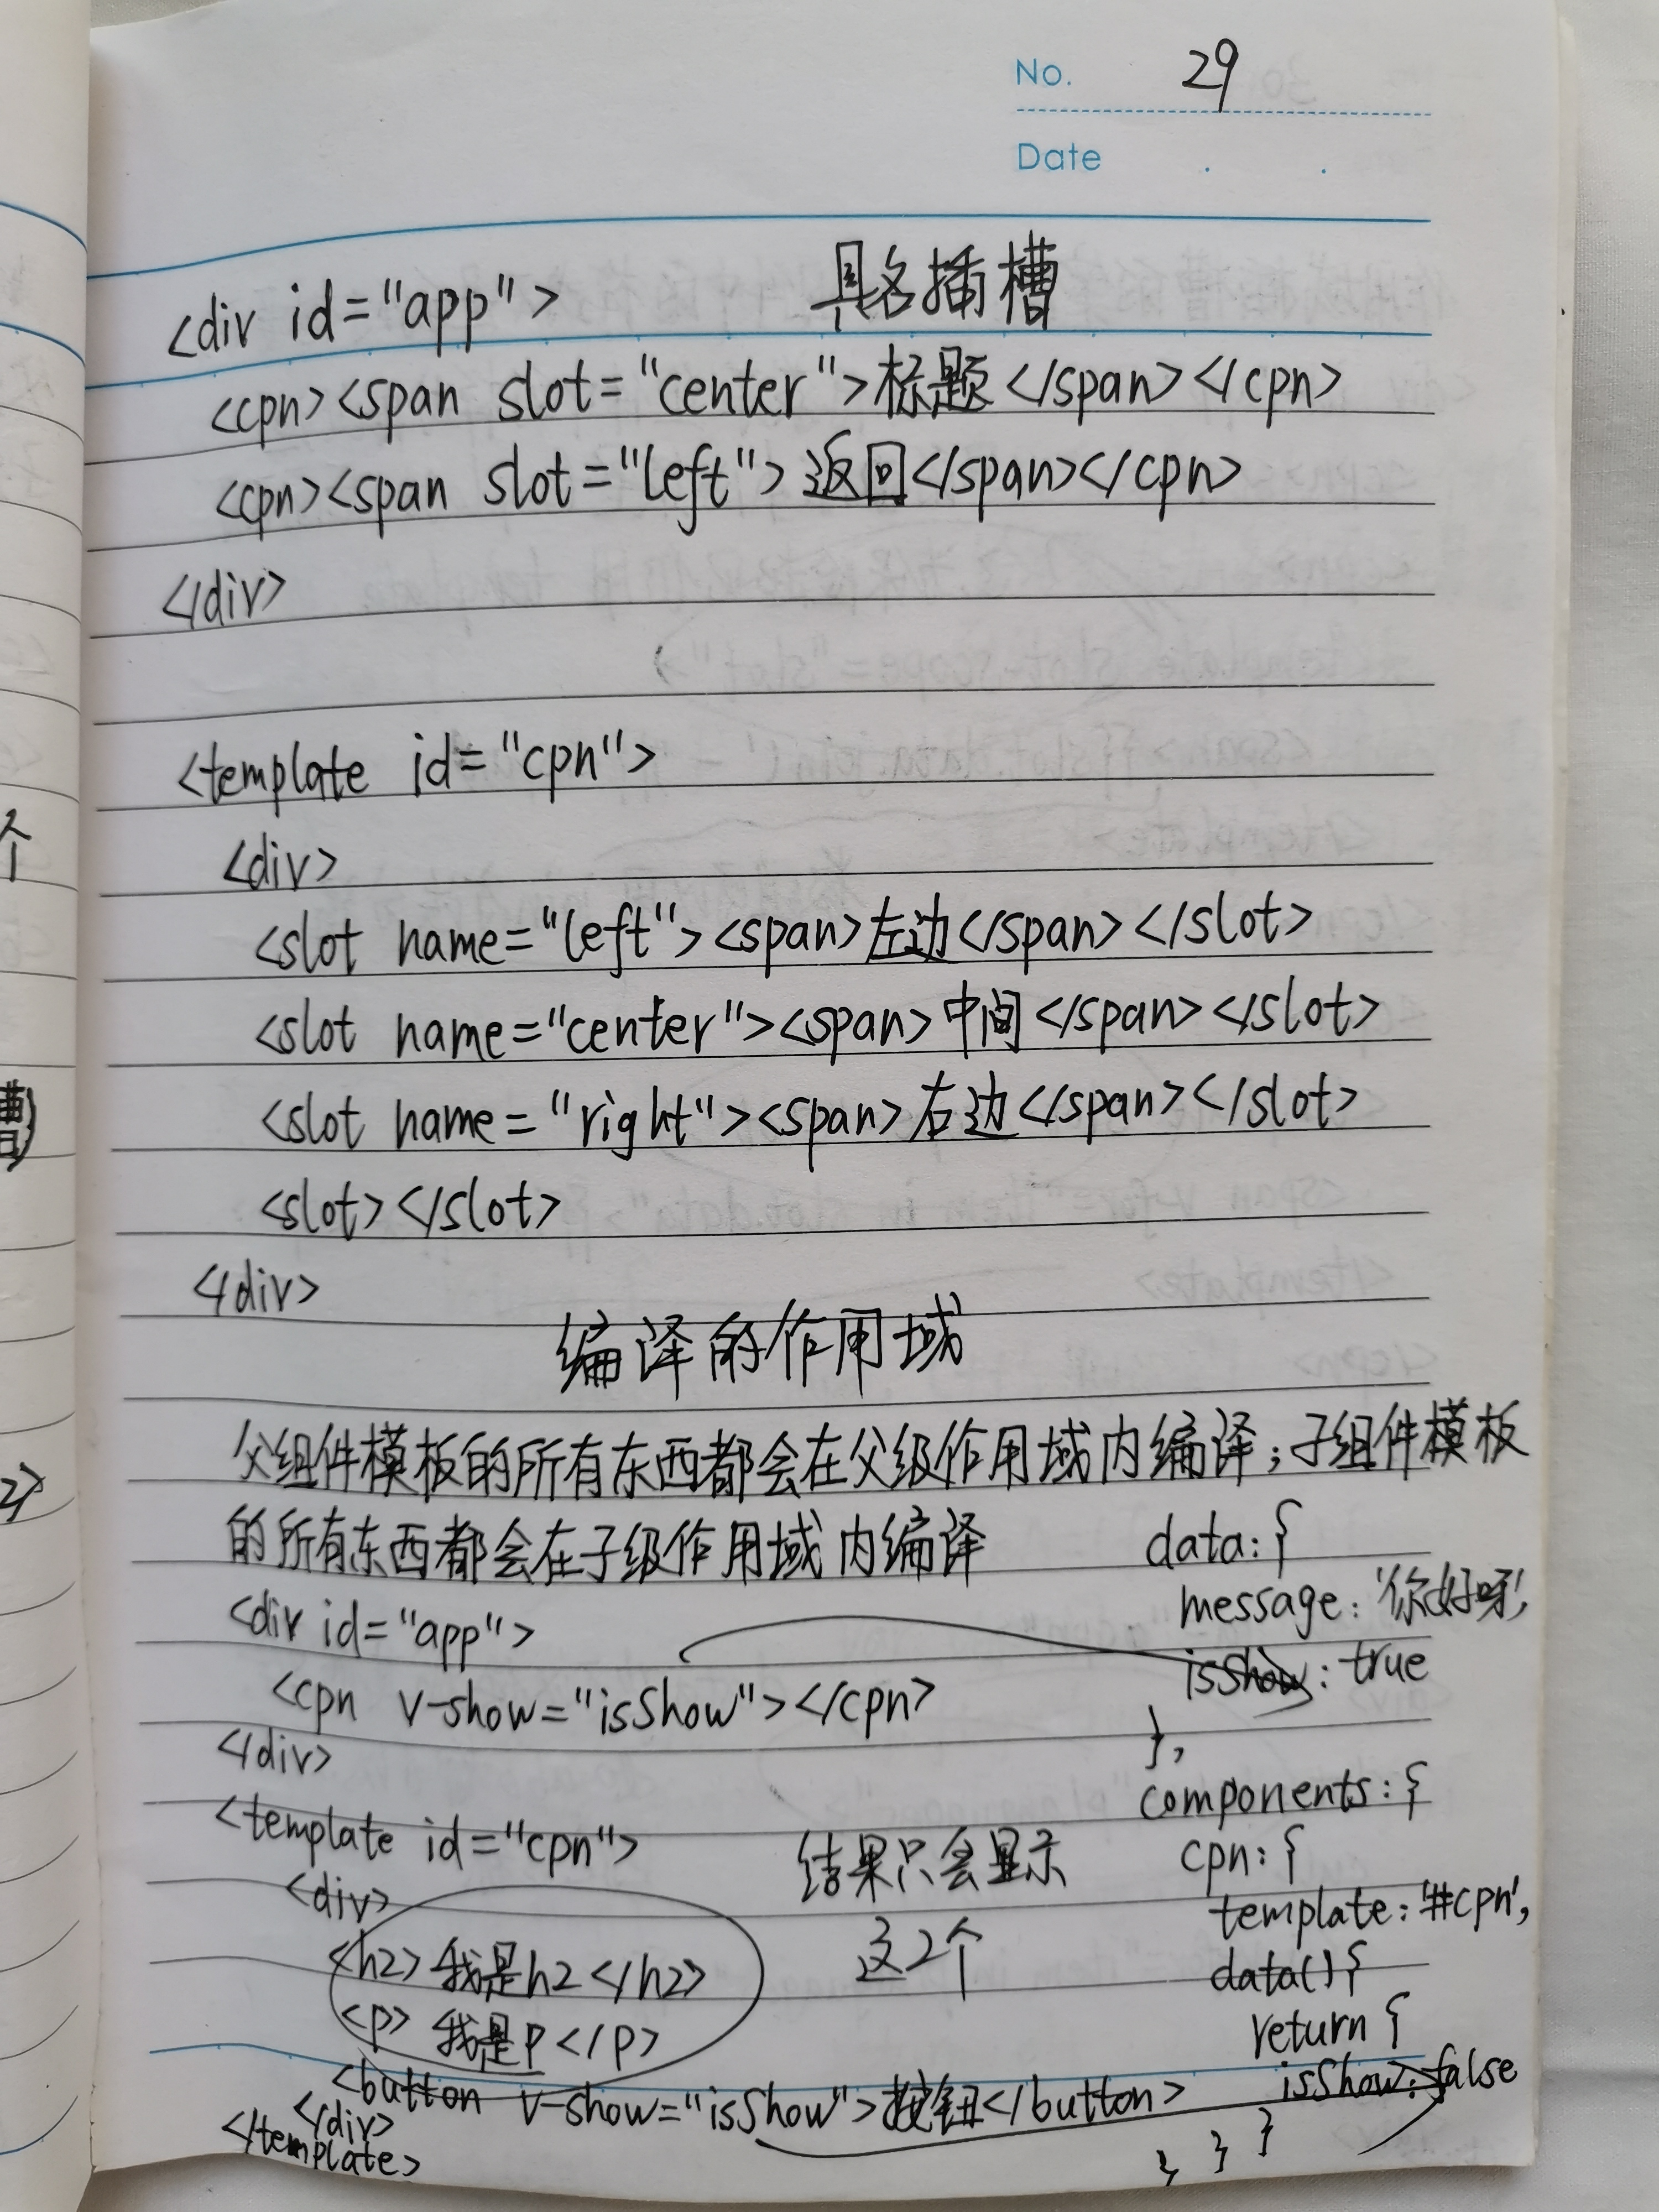 No. 29
Date . .
具名插槽
<div id="app">
<cpn><span slot="center">标题</span></cpn>
<cpn><span slot="left">返回</span></cpn>
</div>
<template id="cpn">
<div>
<slot name="left"><span>左边</span></slot>
<slot name="center"><span>中间</span></slot>
<slot name="right"><span>右边</span></slot>
<slot></slot>
</div>
编译的作用域
父组件模板的所有东西都会在父级作用域内编译;子组件模板
的所有东西都会在子级作用域内编译
<div id="app">
<cpn v-show="isShow"></cpn>
</div>
<template id="cpn">
<div>
<h2>我是h2</h2>
<p>我是p</p>
<button v-show="isShow">按钮</button>
</div>
</template>
结果只会显示
这2个
data:{
message:'你好呀',
isShow:true
},
components:{
cpn:{
template:'#cpn',
data(){
return {
isShow:false
} } }
个
槽)